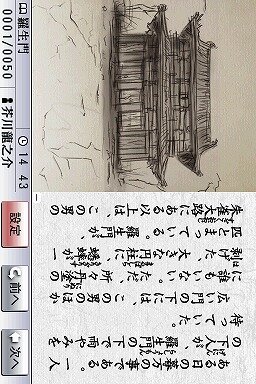 羅生門
14:43
0001/0050
芥川龍之介
設定
前へ
次へ
ある日の暮方の事である。一人
の下人が、羅生門の下で雨やみを
待っていた。
広い門の下には、この男のほか
に誰もいない。ただ、所々丹塗の
剥げた、大きな円柱に、蟋蟀が一
匹とまっている。羅生門が、
朱雀大路にある以上は、この男の